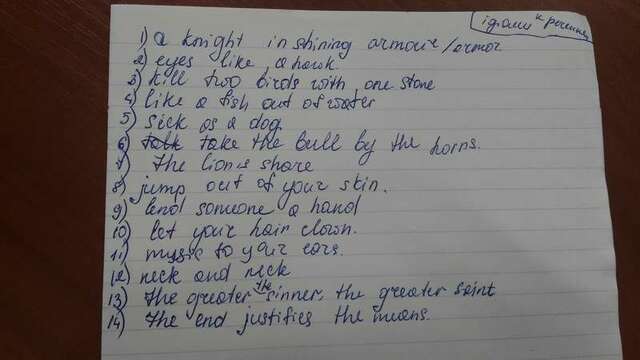 ідіоми к речення
1) a knight in shining armour/armor
2) eyes like a hawk
3) kill two birds with one stone
4) like a fish out of water
5) sick as a dog
6) talk take the bull by the horns.
7) the lion's share
8) jump out of your skin.
9) lend someone a hand
10) let your hair down.
11) music to your ears.
12) neck and neck
13) the greater the sinner, the greater saint
14) the end justifies the means.